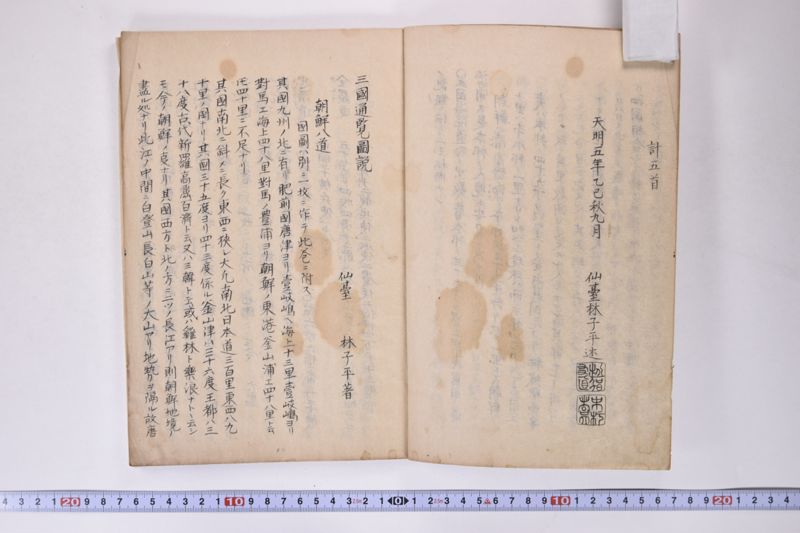 計五首
天明五年乙巳秋九月
仙臺林子平述
三國通覧圖説
仙臺 林子平著
朝鮮八道
国圖ハ別ニ一枚ニ作テ此巻ニ附ス
其國九州ノ北ニ有リ肥前國唐津ヨリ壹岐嶋ヘ海上十三里壹岐嶋ヨリ
對馬エ海上四十八里對馬ノ豊浦ヨリ朝鮮ノ東港釜山浦エ四十八里ト云
四十里ニ不足ナリ
其國南北ニ斜メニ長ク東西ニ狹シ大凢南北日本道三百里東西八九
十里ノ國ナリ其國三十五度ヨリ四十三度係ル釜山津ハ三十六度王都ハ三
十八度古代新羅高麗百濟ト云又ハ三韓ト云或ハ雞林ト樂浪ナトヽ云シ
モ今ノ朝鮮ノ夷ナリ其國西方ト北ノ方ニ二ツノ長江アリ則朝鮮地境ノ
盡ル処ナリ此江ノ中間ニ白登山長白山等ノ大山アリ地勢ヲ隔ル故唐
4 3 2 1 20 9 8 7 6 5 4 3 2 1 10 9 8 7 6 5 4 3 2 1 0 1 2 3 4 5 6 7 8 9 10 1 2 3 4 5 6 7 8 9 20 1 2 3 4